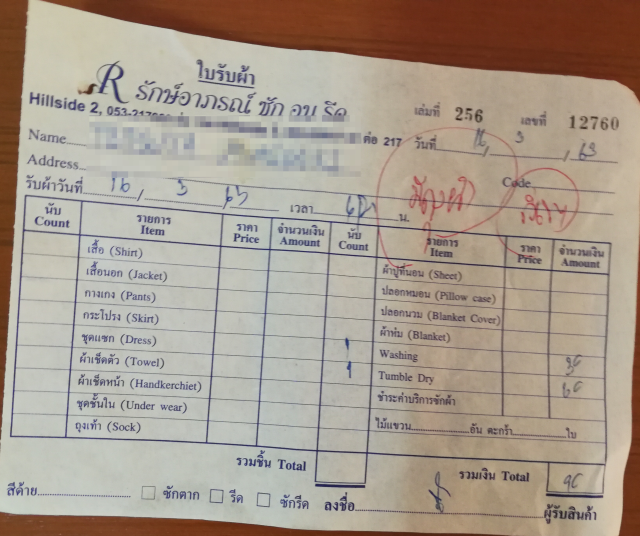 ใบรับผ้า
R รักษ์อาภรณ์ ซัก อบ รีด
เล่มที่ 256 เลขที่ 12760
Hillside 2, 053-217 ต่อ 217 วันที่ 16 / 3 / 63
Name
Address Code
รับผ้าวันที่ 16 / 3 / 63 เวลา น.
นับ Count รายการ Item ราคา Price จำนวนเงิน Amount นับ Count รายการ Item ราคา Price จำนวนเงิน Amount
เสื้อ (Shirt) ผ้าปูที่นอน (Sheet)
เสื้อนอก (Jacket) ปลอกหมอน (Pillow case)
กางเกง (Pants) ปลอกนวม (Blanket Cover)
กระโปรง (Skirt) ผ้าห่ม (Blanket)
ชุดแซก (Dress) 1 Washing 30
ผ้าเช็ดตัว (Towel) 1 Tumble Dry 60
ผ้าเช็ดหน้า (Handkerchiet) ชำระค่าบริการซักผ้า
ชุดชั้นใน (Under wear) ไม้แขวน อัน ตะกร้า ใบ
ถุงเท้า (Sock)
รวมชิ้น Total รวมเงิน Total 90
สีด้าย ซักตาก รีด ซักรีด ลงชื่อ ผู้รับสินค้า